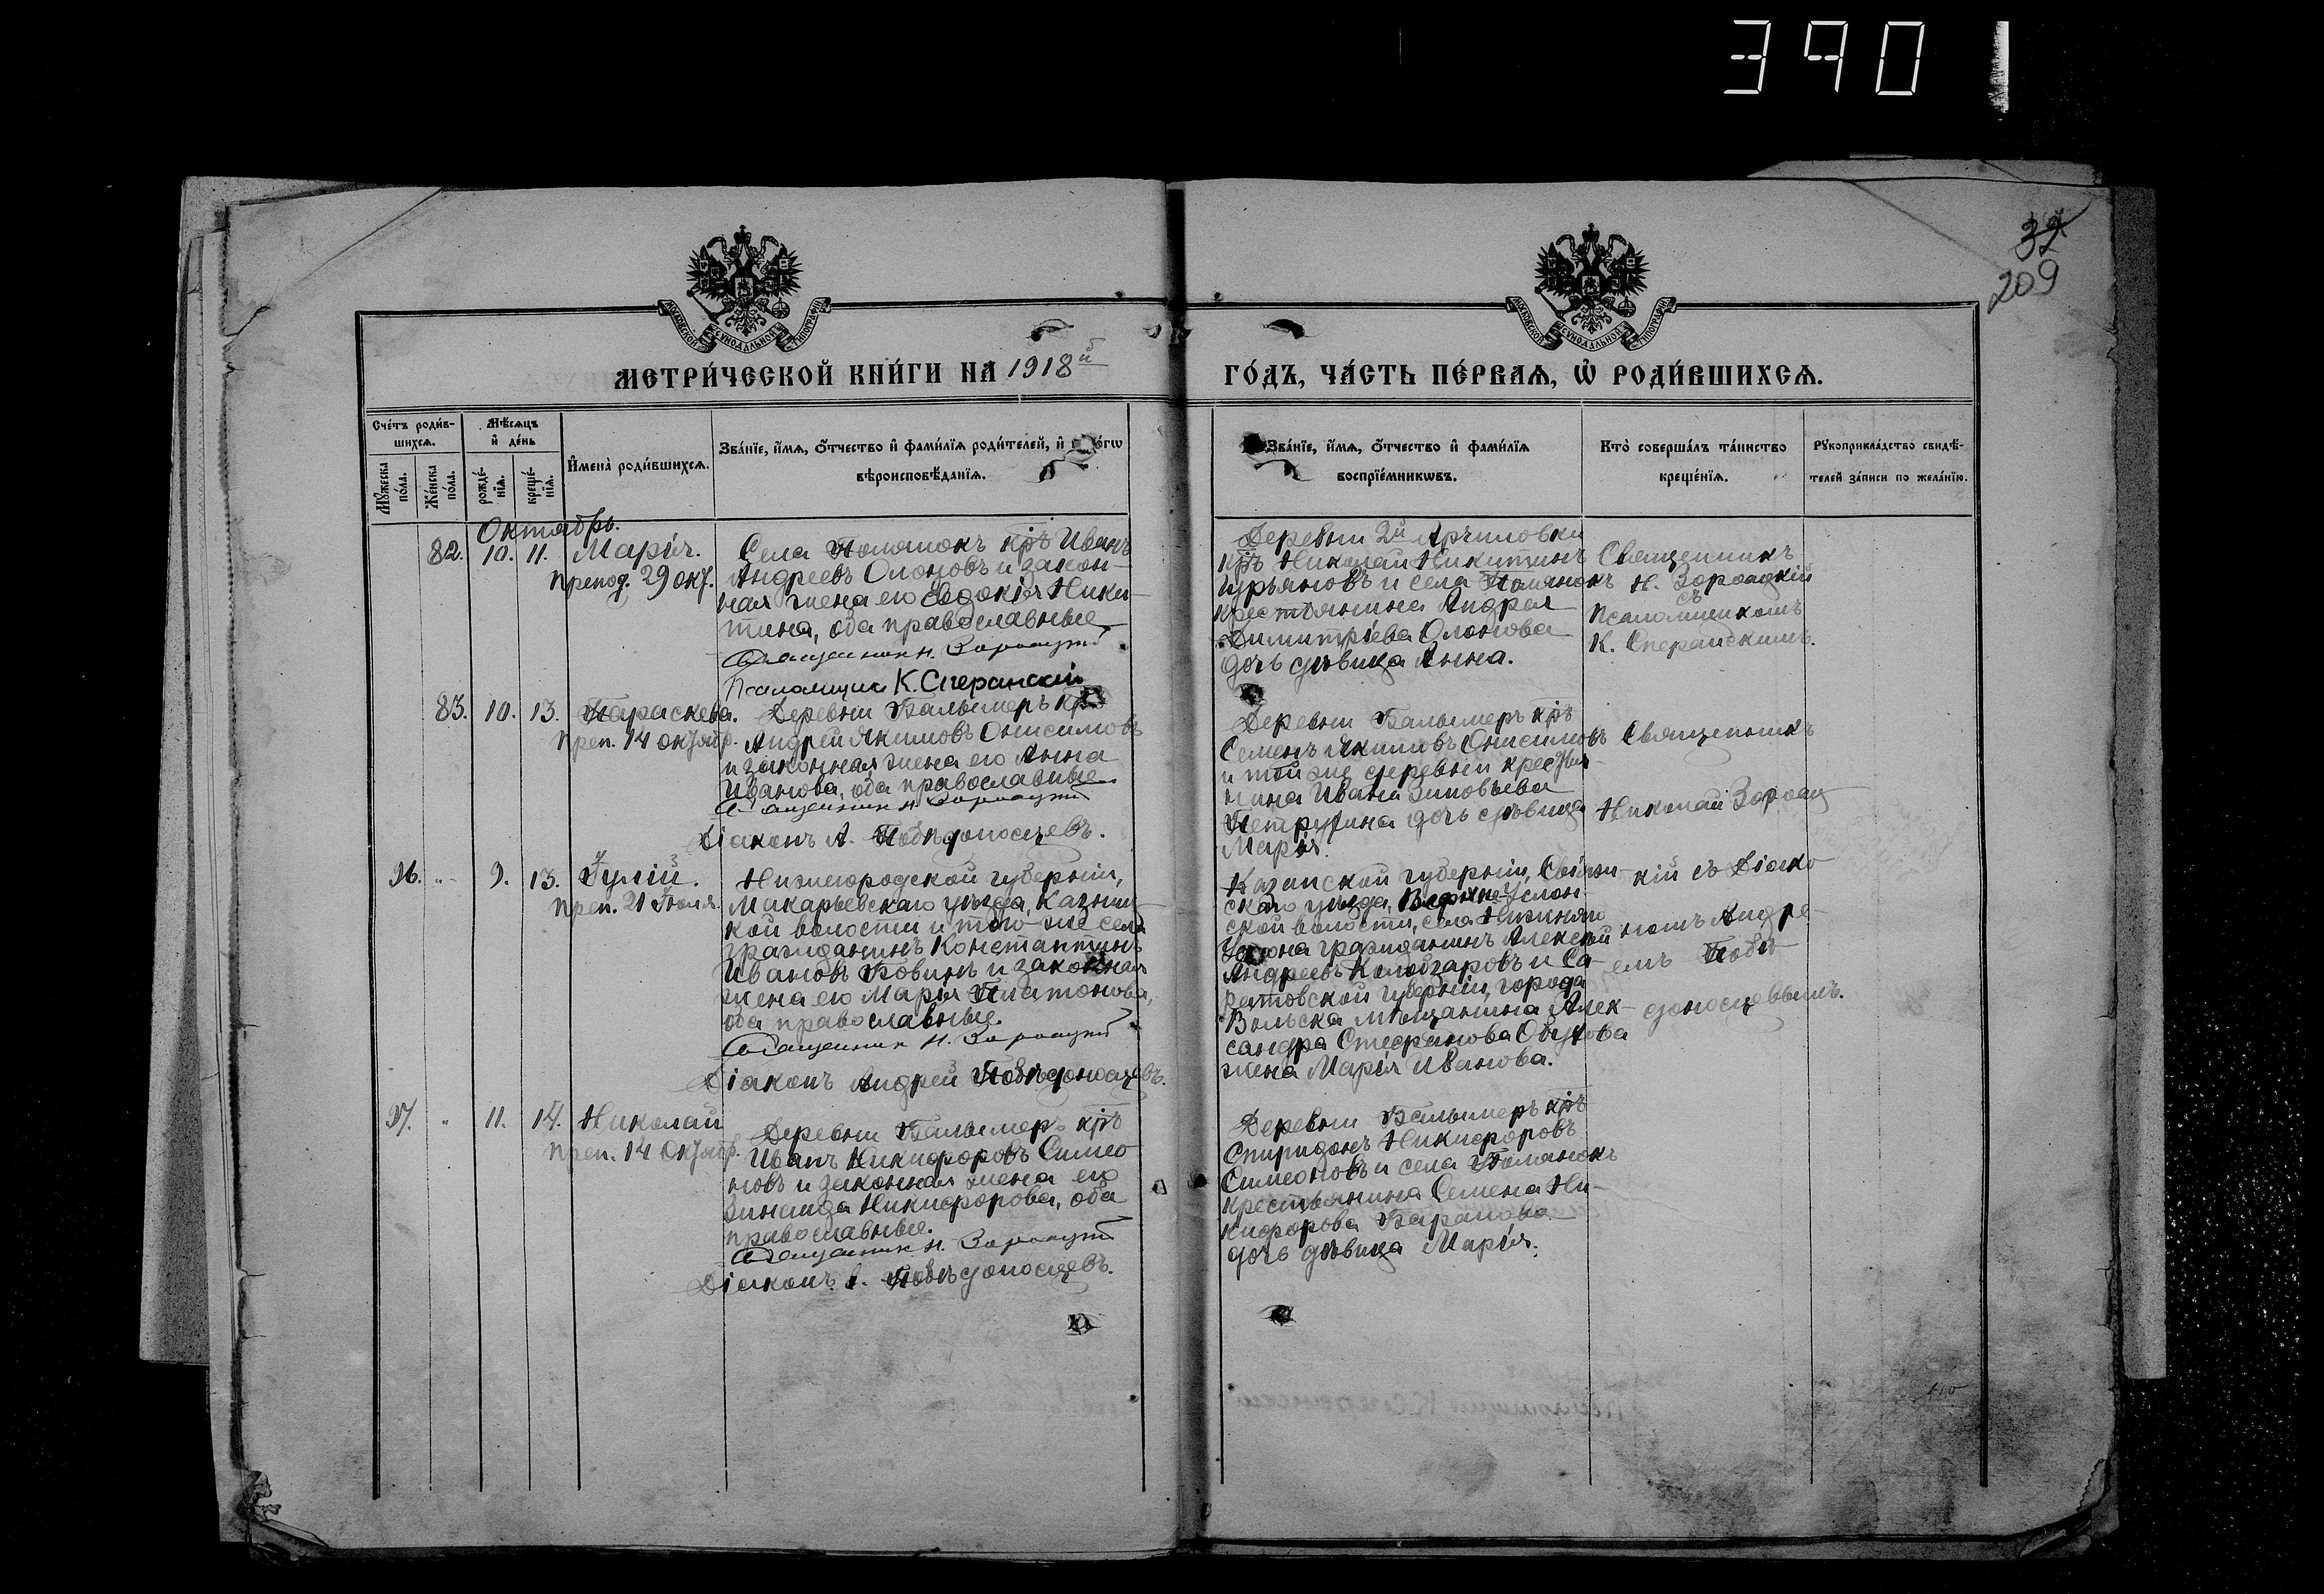 3901
32
209
МОСКОВСКОЙ СУНОДАЛЬНОЙ ТИПОГРАФІИ
МОСКОВСКОЙ СУНОДАЛЬНОЙ ТИПОГРАФІИ
МЕТРИ́ЧЕСКОЙ КНИ́ГИ НА 1918й ГО́ДЪ, ЧА́СТЬ ПЕ́РВАѦ, Ѡ҆ РОДИ́ВШИХСѦ.
Сче́тъ роди́в-
шихсѧ.
Мꙋ́жеска по́ла.
Же́нска по́ла.
Мѣ́сѧцъ
и҆ де́нь
рожде́-
нїѧ.
креще́-
нїѧ.
И҆мена̀ роди́вшихсѧ.
Зва́нїе, и҆́мѧ, ѻ҆́тчество и҆ фами́лїѧ роди́телей, и҆
вѣроисповѣ́данїѧ.
Зва́нїе, и҆́мѧ, ѻ҆́тчество и҆ фами́лїѧ
воспрїе́мникѡвъ.
Кто̀ соверша́лъ та́инство
креще́нїѧ.
Рꙋкоприкла́дство свидѣ́-
телей за́писи по жела́нїю.
Октябрь.
82. 10. 11. Марія.
препод. 29 окт.
Села Полянокъ кр̅ъ Иванъ
Андреевъ Олоновъ и закон-
ная жена его Евдокія Ники-
тина, оба православные
Священникъ Н.
Псаломщикъ К. Сперанскій
Деревни 2й Арчиловки
кр̅ъ Николай Никитинъ
Гурьяновъ и села Полянокъ
крестьянина Андрея
Димитріева Олонова
дочь дѣвица Анна.
Священникъ
Н.
съ
Псаломщикомъ
К. Сперанскимъ.
83. 10. 13. Параскева.
преп. 14 октяб.
Деревни Балымеръ кр̅ъ
Андрей Якимовъ Онисимовъ
и законная жена его Анна
Иванова, оба православные.
Священникъ Н.
Діаконъ А. Побѣдоносцевъ.
Деревни Балымеръ кр̅ъ
Семенъ Якимовъ Онисимовъ
и той же деревни крестья-
нина Ивана Зиновьева
Петрухина дочь дѣвица
Марія.
Священникъ
Николай
96. " 9. 13. Іулій.
преп. 21 Іюля.
Нижегородской губерніи,
Макарьевскаго уѣзда,
кой волости и того-же села
гражданинъ Константинъ
Ивановъ Бовинъ и законная
жена его Марія Платонова,
оба православные.
Священникъ Н.
Діаконъ Андрей Побѣдоносцевъ.
Казанской губерніи, Свіяж-
скаго уѣзда, Верхне-Услон-
ской волости, села Нижняго
Услона гражданинъ Алексѣй
Андреевъ и Са-
ратовской губерніи, города
Вольска мѣщанина Алек-
сандра Стефанова
жена Марія Иванова.
кій съ Діако-
номъ Андре-
емъ Побѣ-
доносцевымъ.
97. " 11. 14. Николай
преп. 14 октяб.
Деревни Балымеръ кр̅ъ
Иванъ Никифоровъ Симео-
новъ и законная жена его
Зинаида Никифорова, оба
православные.
Священникъ Н.
Діаконъ А. Побѣдоносцевъ.
Деревни Балымеръ кр̅ъ
Спиридонъ Никифоровъ
Симеоновъ и села Полянокъ
крестьянина Семена Ни-
кифорова Баранова
дочь дѣвица Марія.